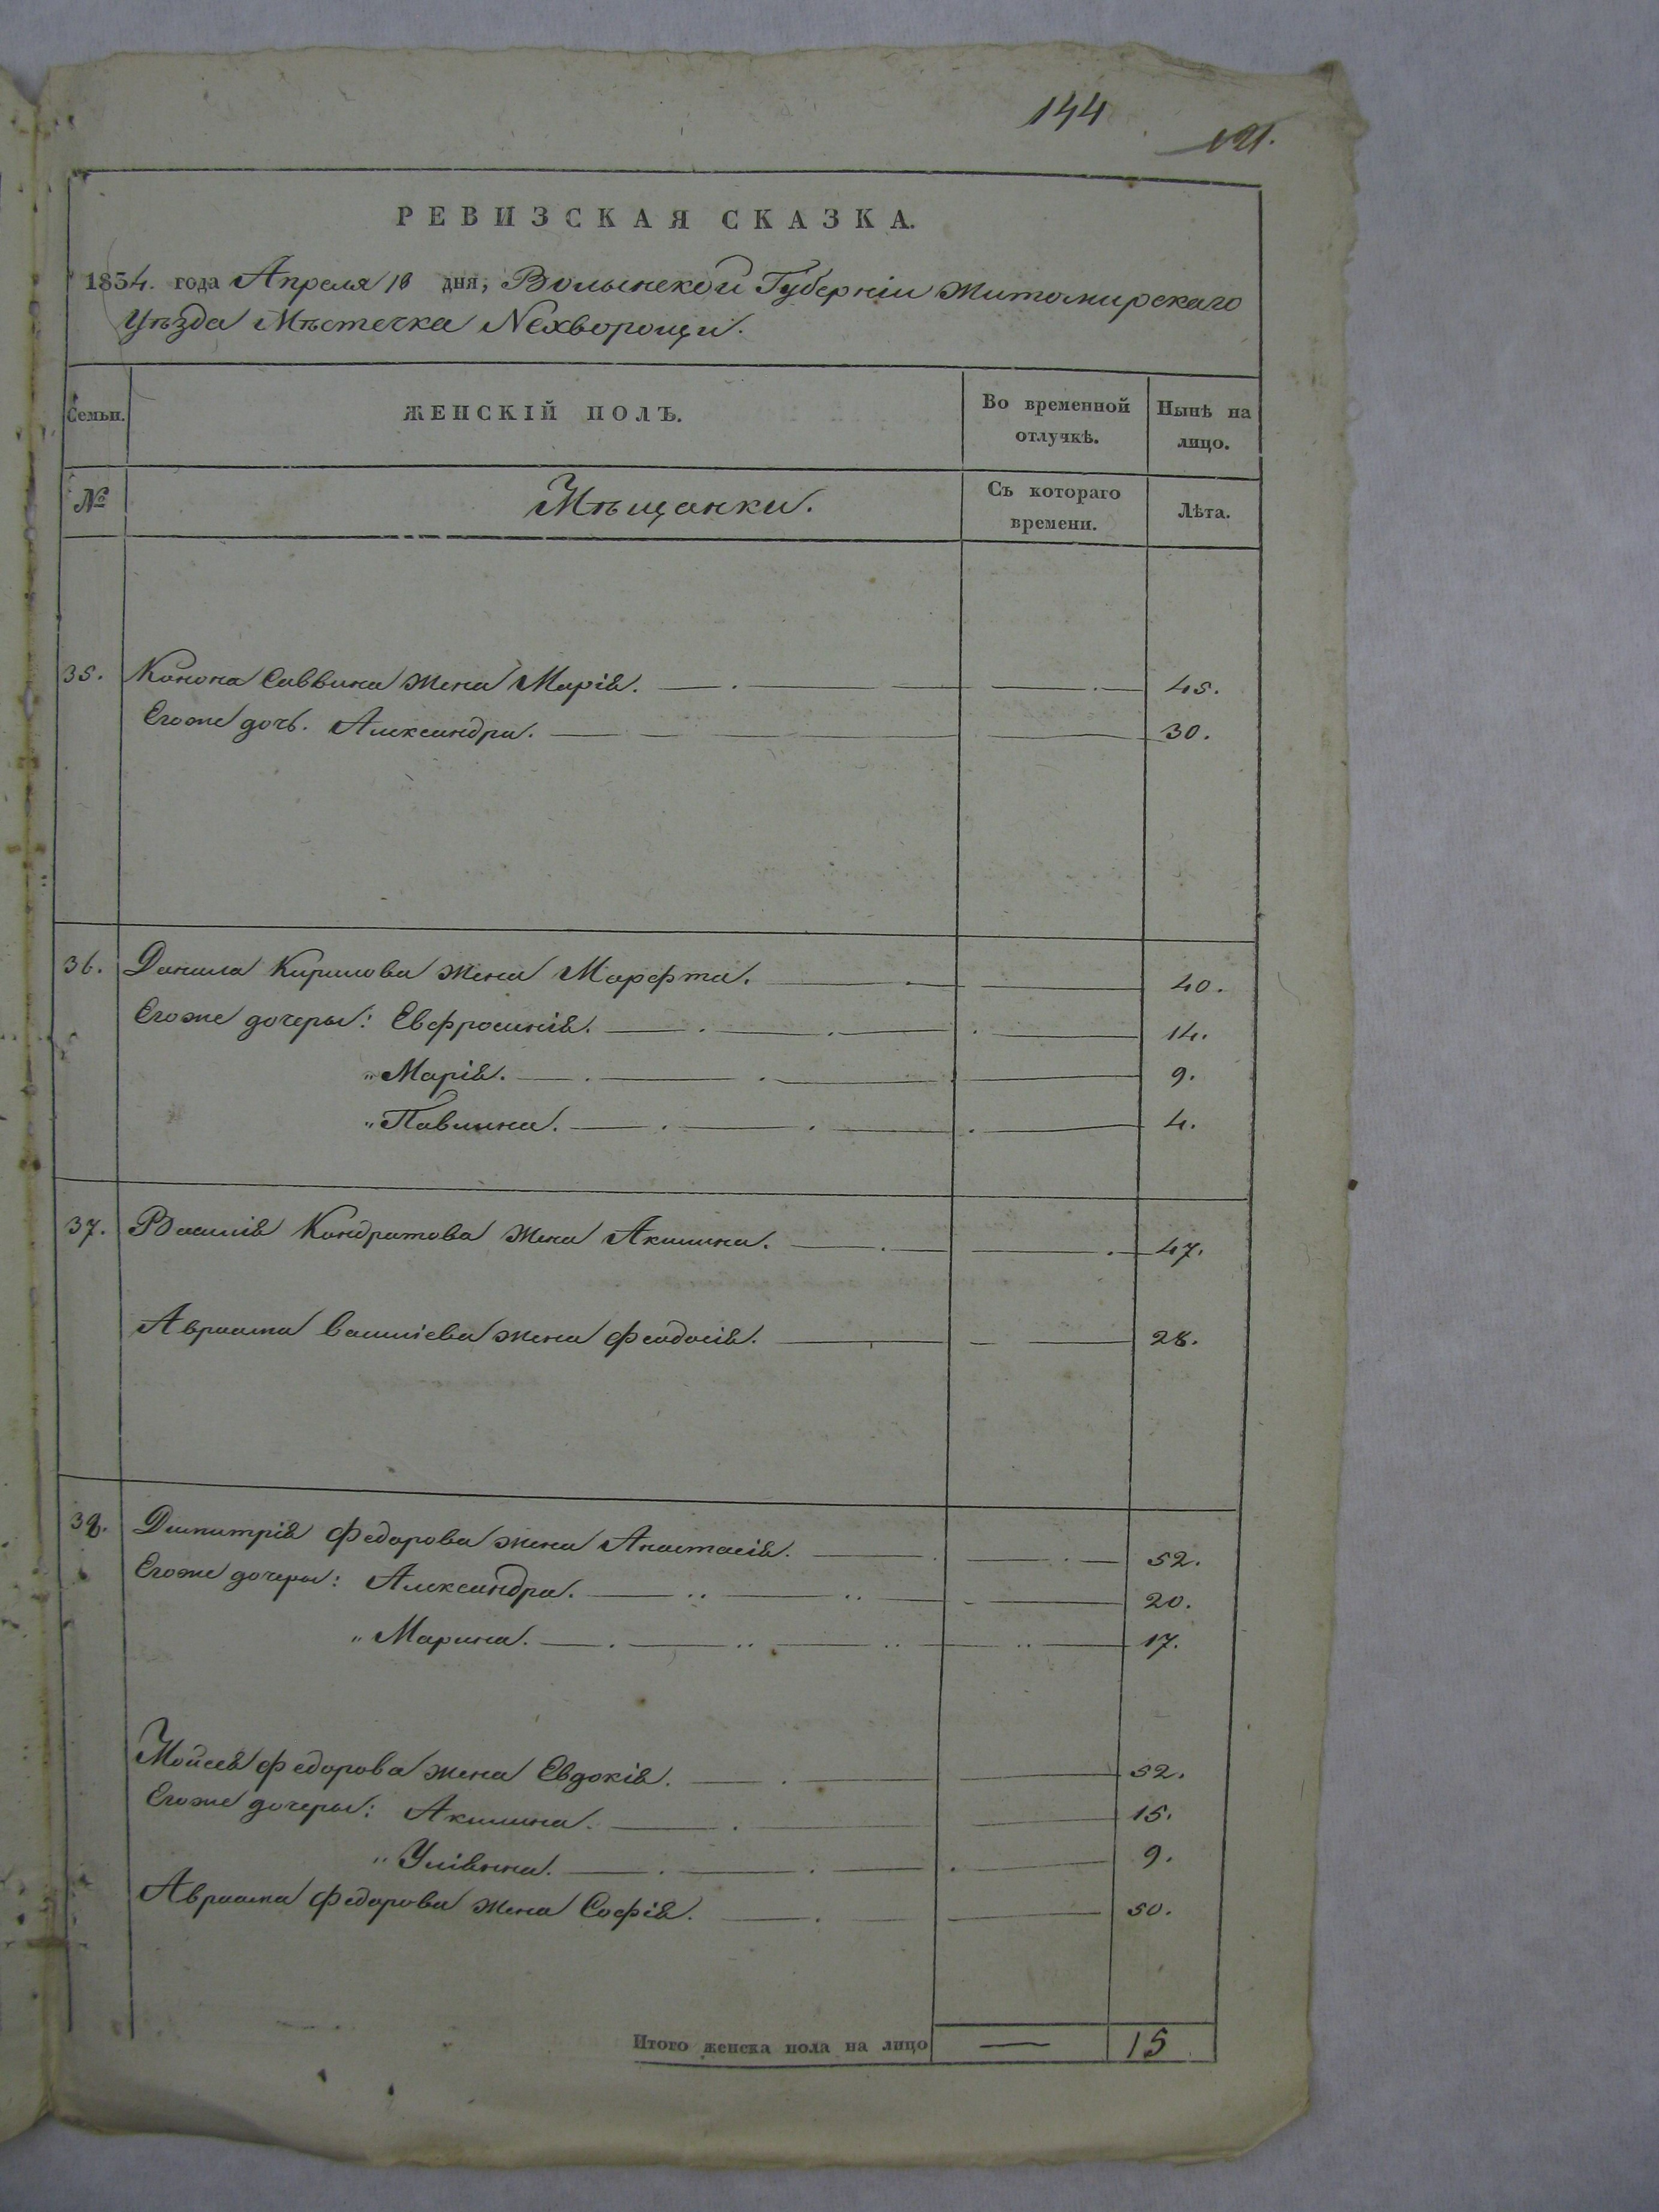 144
РЕВИЗСКАЯ СКАЗКА.
1854. года Апреля 10 дня, Волынской Губерніи Житомирскаго
Уѣзда Мѣстечка Нехворощи.
Семьи. ЖЕНСКІЙ ПОЛЪ. Во временной отлучкѣ. Нынѣ на лицо.
№ Мѣщанки. Съ котораго времени. Лѣта.
35. Конона Саввина жена Марія. 45.
Егоже дочь. Александра. 30.
36. Данила Кирилова жена Марфта. 40.
Егоже дочеры: Евфросинія. 14.
„ Марія. 9.
„ Павлина. 4.
37. Василія Кондратова жена Акилина. 47.
Авраама Василіева жена Феодосія. 28.
38. Дмитрія Федорова жена Анастасія. 52.
Егоже дочеры: Александра. 20.
„ Марина. 17.
Мойсея Федорова жена Евдокія. 52.
Егоже дочеры: Акилина. 15.
„ Уліянна. 9.
Авраама Федорова жена Софія. 50.
Итого женска пола на лицо — 15